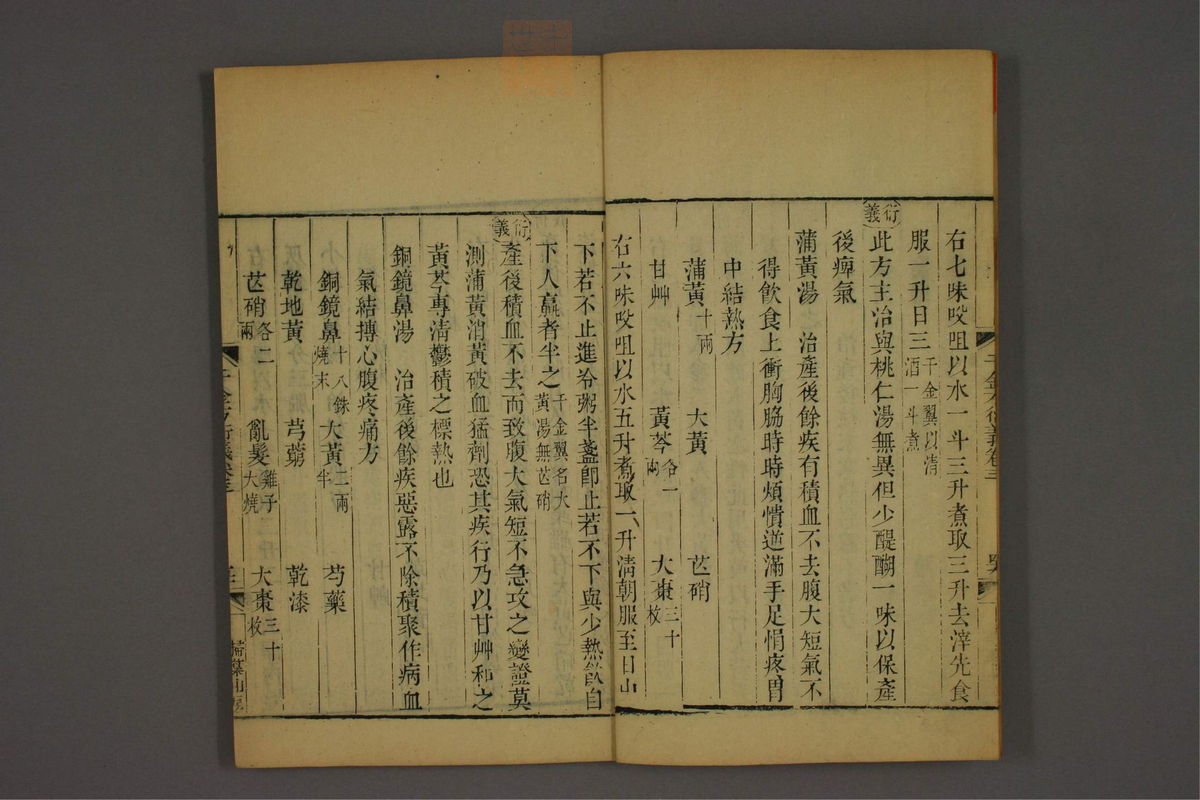 右七味㕮咀以水一斗三升煮取三升去滓先食
服一升日三千金翼以清酒一斗煮
衍義
此方主治與桃仁湯無異但少醍醐一味以保產
後痺氣
蒲黃湯 治產後餘疾有積血不去腹大短氣不
得飲食上衝胸脇時時煩憒逆滿手足悁疼胃
中結熱方
蒲黃十兩 大黃 芒硝
甘艸 黃芩各一兩 大棗三十枚
右六味㕮咀以水五升煮取一升清朝服至日
下若不止進冷粥半盞即止若不下與少熱飲自
下人羸者半之千金翼名大黃湯無芒硝
衍義
產後積血不去而致腹大氣短不急攻之變證莫
測蒲黃消黃破血猛劑恐其疾行乃以甘艸和之
黃芩專清鬱積之標熱也
銅鏡鼻湯 治產後餘疾惡露不除積聚作病血
氣結搏心腹疼痛方
銅鏡鼻十八銖燒末 大黃二兩半 芍藥
乾地黃 芎藭 乾漆
芒硝各二兩 亂髮雞子大燒 大棗三十枚
千金方衍義卷三
掃葉山房